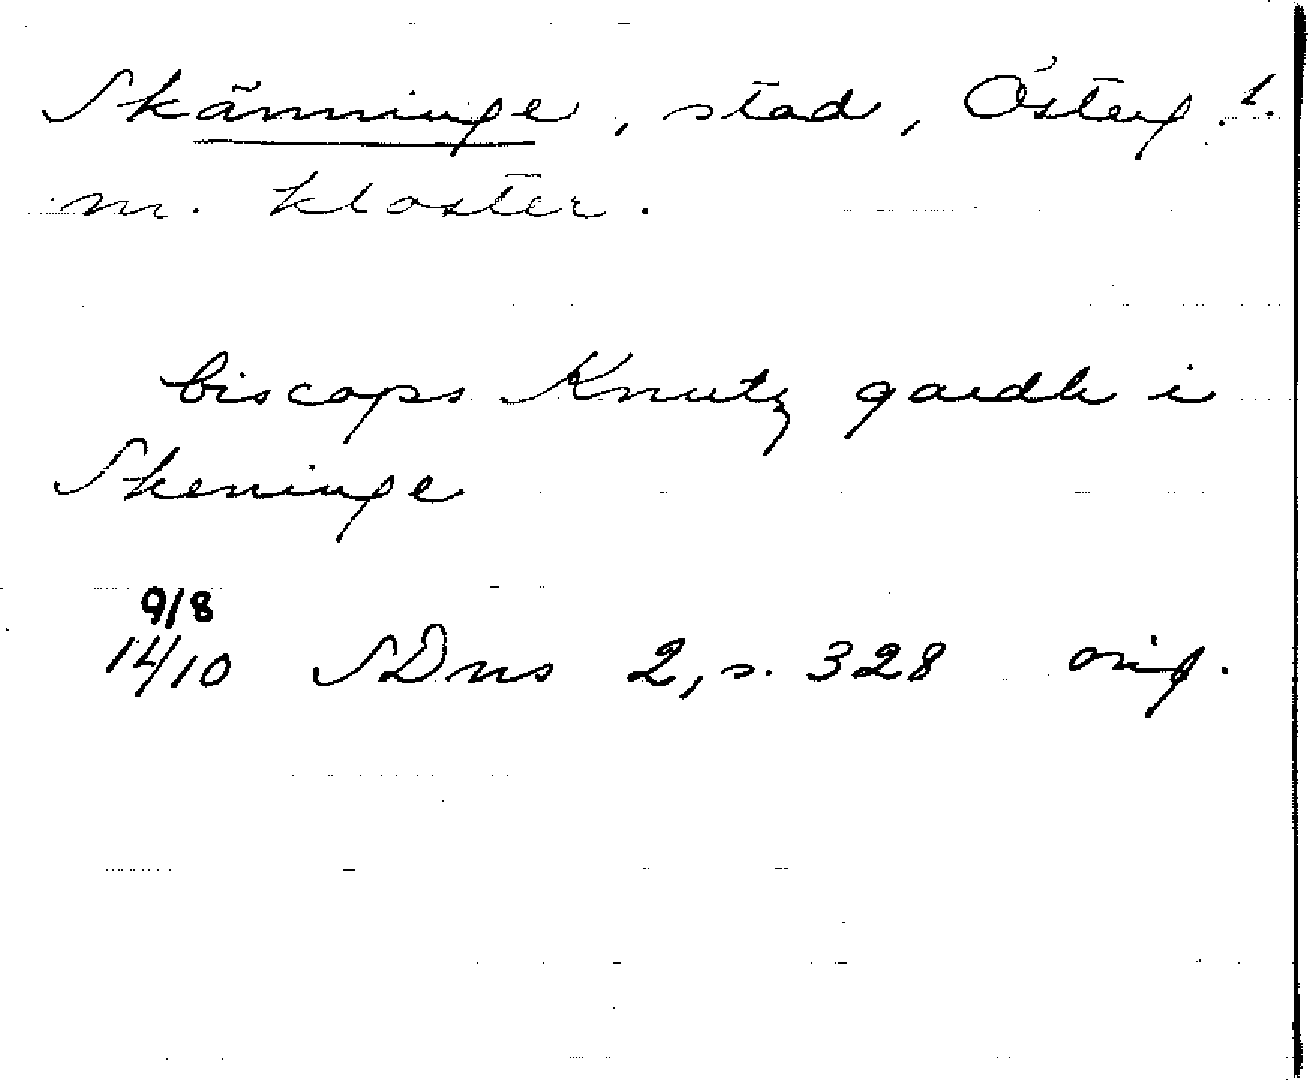 Skänninge, stad, Österg. l.
m. kloster.
biscops Knutz gardh i
Skeninge
9/8
14/10 SDns 2, s. 328 orig.